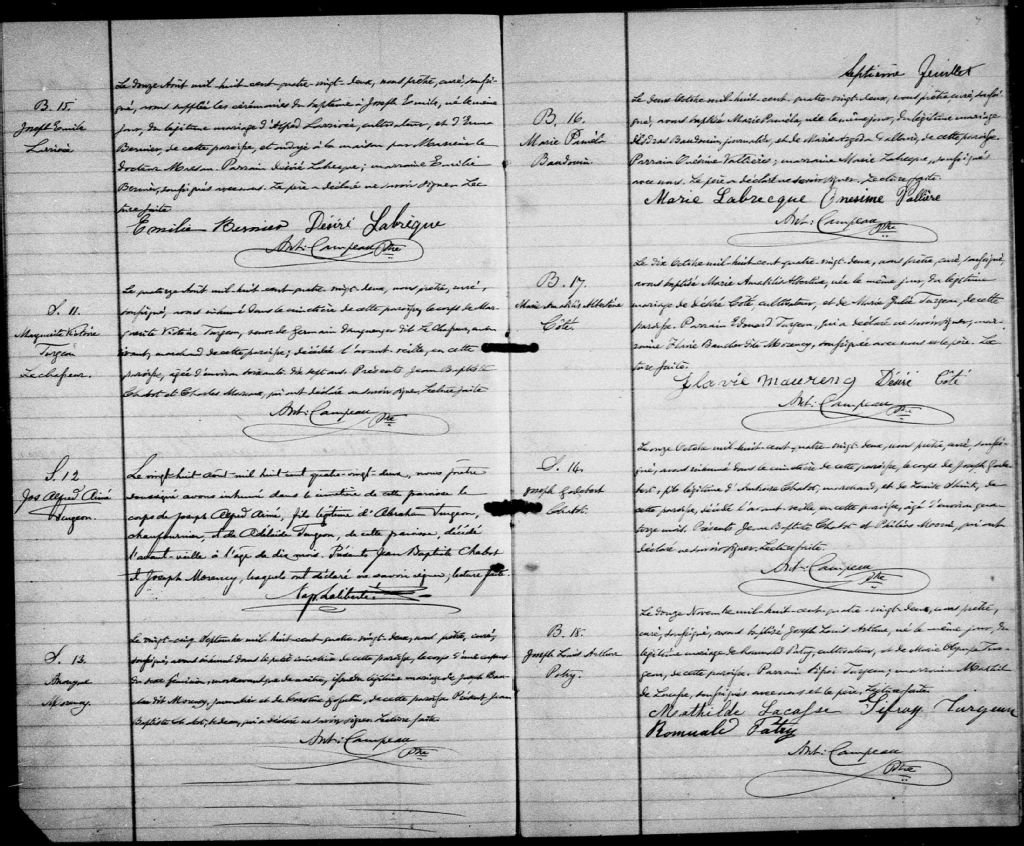 B. 15
Joseph Emile
Larivée
Le douze Août mil huit cent quatre vingt-deux, nous prêtre, curé, soussi-
gné, avons suppléé les cérémonies du baptême à Joseph Emile, né le même
jour, du légitime mariage d'Alfred Larrivée, cultivateur, et d'Emma
Bernier, de cette paroisse, et ondoyé à la maison par Monsieur le
docteur Parrain Désiré Labeque; marraine Emilie
Bernier, soussignés avec nous. Le père a déclaré ne savoir signer. Lec-
ture faite
Emilie Bernier Désiré Labrèque
Ant: Campeau Ptre
S. 11.
Marguerite Victoire
Turgeon
Lechasseur.
Le quatorze Août mil huit cent quatre vingt-deux, nous prêtre, curé,
soussigné, avons inhumé dans le cimetière de cette paroisse, le corps de Mar-
guerite Victoire Turgeon, veuve de Germain dit Le Chasseur, en son
vivant, marchand de cette paroisse; décédée l'avant-veille, en cette
paroisse, agée d'environ soixante dix sept ans. Présents Jean Baptiste
Chabot et Charles qui ont déclaré ne savoir signer. Lecture faite
Ant: Campeau Ptre
S. 12
Jos Alfred Aimé
Turgeon.
Le vingt huit août mil huit cent quatre-vingt-deux, nous prêtre
soussigné avons inhumé dans le cimetière de cette paroisse le
corps de Joseph Alfred Aimé, fils légitime d'Abraham Turgeon,
chaufournier, & de Adélaïde Turgeon, de cette paroisse, décédé
l'avant-veille à l'âge de dix mois. Présents Jean Baptiste Chabot
et Joseph Morency, lesquels ont déclaré ne savoir signer, lecture faite.
Nap. Laliberté
S. 13.
Anonyme
Morency.
Le vingt-cinq Septembre mil huit-cent-quatre-vingt-deux, nous prêtre, curé,
soussigné, avons inhumé dans le petit cimetière de cette paroisse, le corps d'une enfant
du sexe féminin, morte avant que de naître, issue du légitime mariage de Joseph Bau-
cher dit Morency, journalier, et de de cette paroisse Présent Jean
Baptiste Chabot, bedeau, qui a déclaré ne savoir signer. Lecture faite.
Ant: Campeau Ptre
7
Septième feuillet
B. 16.
Marie Paméla
Baudouin
Le deux Octobre mil-huit-cent-quatre-vingt-deux, nous prêtre, curé, soussi-
gné, avons baptisé Marie Paméla, née le même jour, du légitime mariage
d'Esdras Baudouin, journalier, et de Marie Vallière, de cette paroisse.
Parrain Onésime Vallières; marraine Marie Labecque, soussignés
avec nous. Le père a déclaré ne savoir signer. Lecture faite.
Marie Labrecque Onesime Vallière
Ant: Campeau Ptre
B. 17.
Marie Amabilis Albertine
Côté.
Le dix Octobre mil-huit-cent-quatre-vingt-deux, nous prêtre, curé, soussigné,
avons baptisé Marie Amabilis Albertine, née le même jour, du légitime
mariage de Désiré Coté, cultivateur, et de Marie Julie Turgeon, de cette
paroisse. Parrain Edouard Turgeon, qui a déclaré ne savoir signer, mar-
raine Flavie Baucher dite Morency, soussignée avec nous et le père. Lec-
ture faite.
Flavie maureng Désiré Coté
Ant: Campeau Ptre
S. 14.
Joseph Godebert
Chabot.
Le onze Octobre mil-huit-cent-quatre-vingt-deux, nous prêtre, curé, soussi-
gné, avons inhumé dans le cimetière de cette paroisse, le corps de Joseph Gode-
bert, fils légitime d'Ambroise Chabot, marchand, et de Louise de
cette paroisse, décédé l'avant-veille en cette paroisse, agé d'environ qua-
torze mois. Présents Jean Baptiste Chabot et Philéas qui ont
déclaré ne savoir signer. Lecture faite.
Ant: Campeau Ptre
B. 18.
Joseph Louis Arthur
Patry.
Le douze Novembre mil-huit-cent-quatre-vingt-deux, nous prêtre,
curé, soussigné, avons baptisé Joseph Louis Arthur, né le même jour, du
légitime mariage de Romuald Patry, cultivateur, et de Marie Olympe Tur-
geon, de cette paroisse. Parrain Sifroi Turgeon; marraine Mathilde
de Lacasse, soussignés avec nous et le père. Lecture faite.
Mathilde Lacasse Sifroy Turgeon
Romuald Patry
Ant: Campeau
Ptre